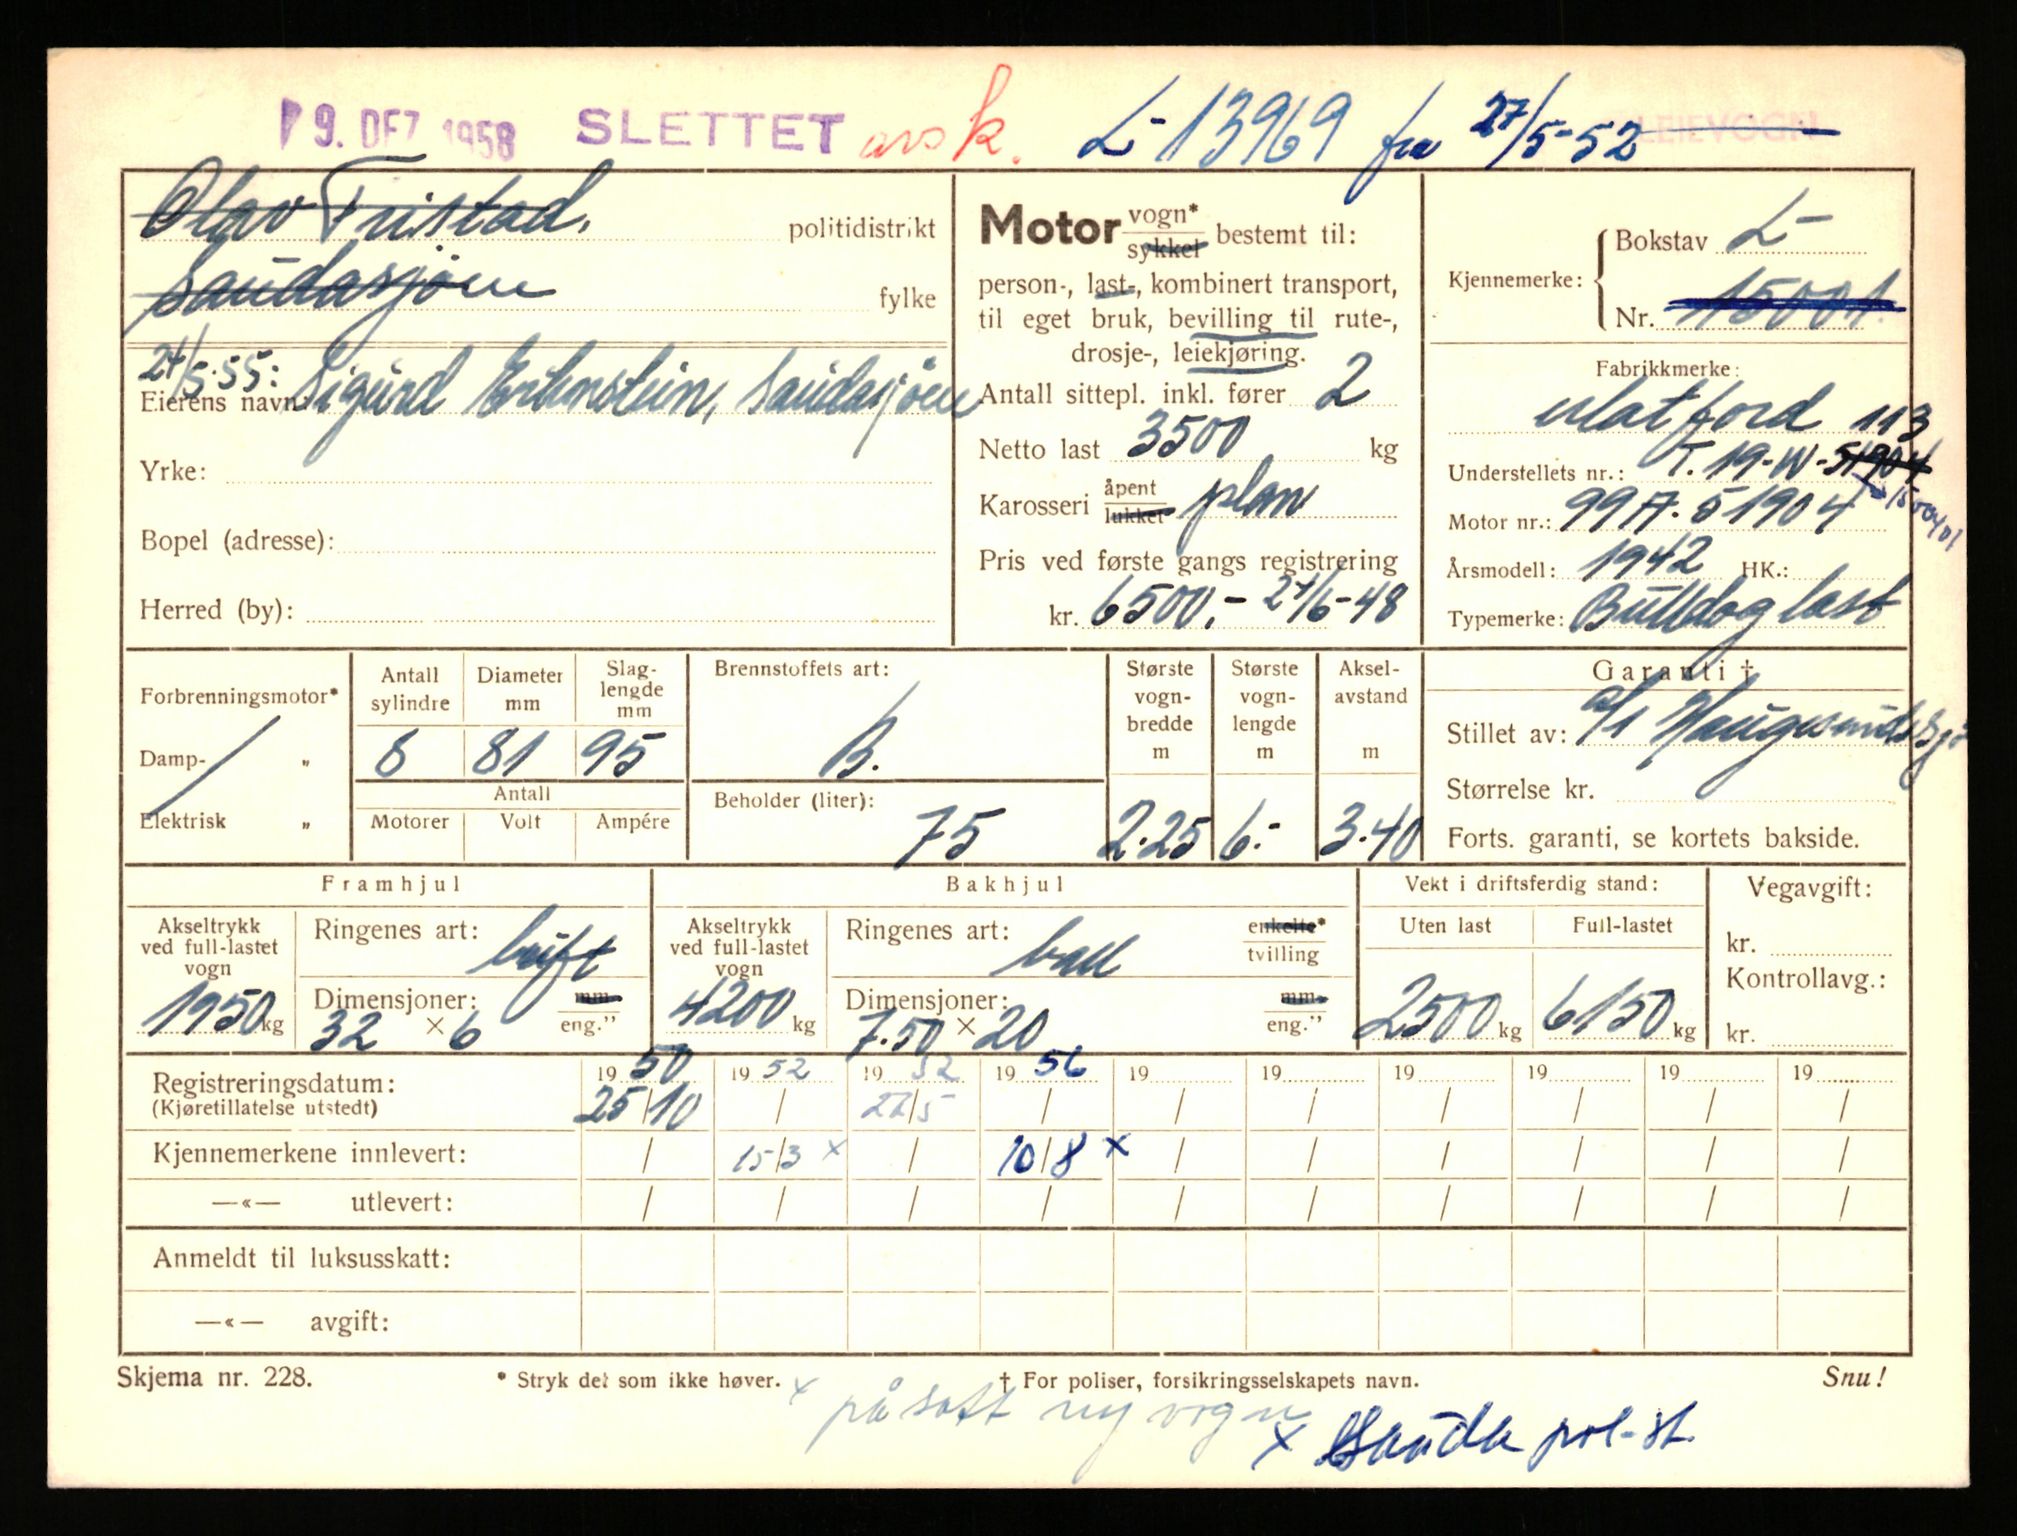 9. DEZ 1958 SLETTET avsk. L-13969 fra 27/5-52 LEIEVOGN
Olav Tristad, politidistrikt
Saudasjøen fylke
24/5.55:
Eierens navn: Sigurd Erknstein, Saudasjøen
Yrke:
Bopel (adresse):
Herred (by):
Motor vogn* sykkel bestemt til:
person-, last-, kombinert transport,
til eget bruk, bevilling til rute-,
drosje-, leiekjøring.
Antall sittepl. inkl. fører 2
Netto last 3500 kg
Karosseri åpent lukket plan
Pris ved første gangs registrering
kr. 6500,- 24/6-48
Kjennemerke: Bokstav L-
Nr. 15001.
Fabrikkmerke:
Ford 113
Understellets nr.: T.19-W-51904
1500401
Motor nr.: 99A.51904
Årsmodell: 1942 HK.:
Typemerke: Bulldog last
Forbrenningsmotor*
Damp- „
Elektrisk „
Antall sylindre Diameter mm Slag-lengde mm
8 81 95
Antall
Motorer Volt Ampére
Brennstoffets art:
B.
Beholder (liter):
75
Største vogn-bredde m Største vogn-lengde m Aksel-avstand m
2.25 6.- 3.40
Garanti †
Stillet av: a/s Haugesunds Sjø
Størrelse kr.
Forts. garanti, se kortets bakside.
Framhjul
Akseltrykk ved full-lastet vogn
1950 kg
Ringenes art: luft
Dimensjoner: mm
32 × 6 eng.”
Bakhjul
Akseltrykk ved full-lastet vogn
4200 kg
Ringenes art: ball enkelte* tvilling
Dimensjoner: mm
7.50 × 20 eng.”
Vekt i driftsferdig stand:
Uten last Full-lastet
2500 kg 6150 kg
Vegavgift:
kr.
Kontrollavg.:
kr.
Registreringsdatum: 1950 1952 1952 1956 19 19 19 19 19 19
(Kjøretillatelse utstedt) 25/10 / 27/5 / / / / / / /
Kjennemerkene innlevert: / 15/3 x / 10/8 x / / / / / /
—«— utlevert: / / / / / / / / / /
Anmeldt til luksusskatt:
—«— avgift:
Skjema nr. 228. * Stryk det som ikke høver. † For poliser, forsikringsselskapets navn. Snu!
x påsatt ny vogn
x Sauda pol-st.